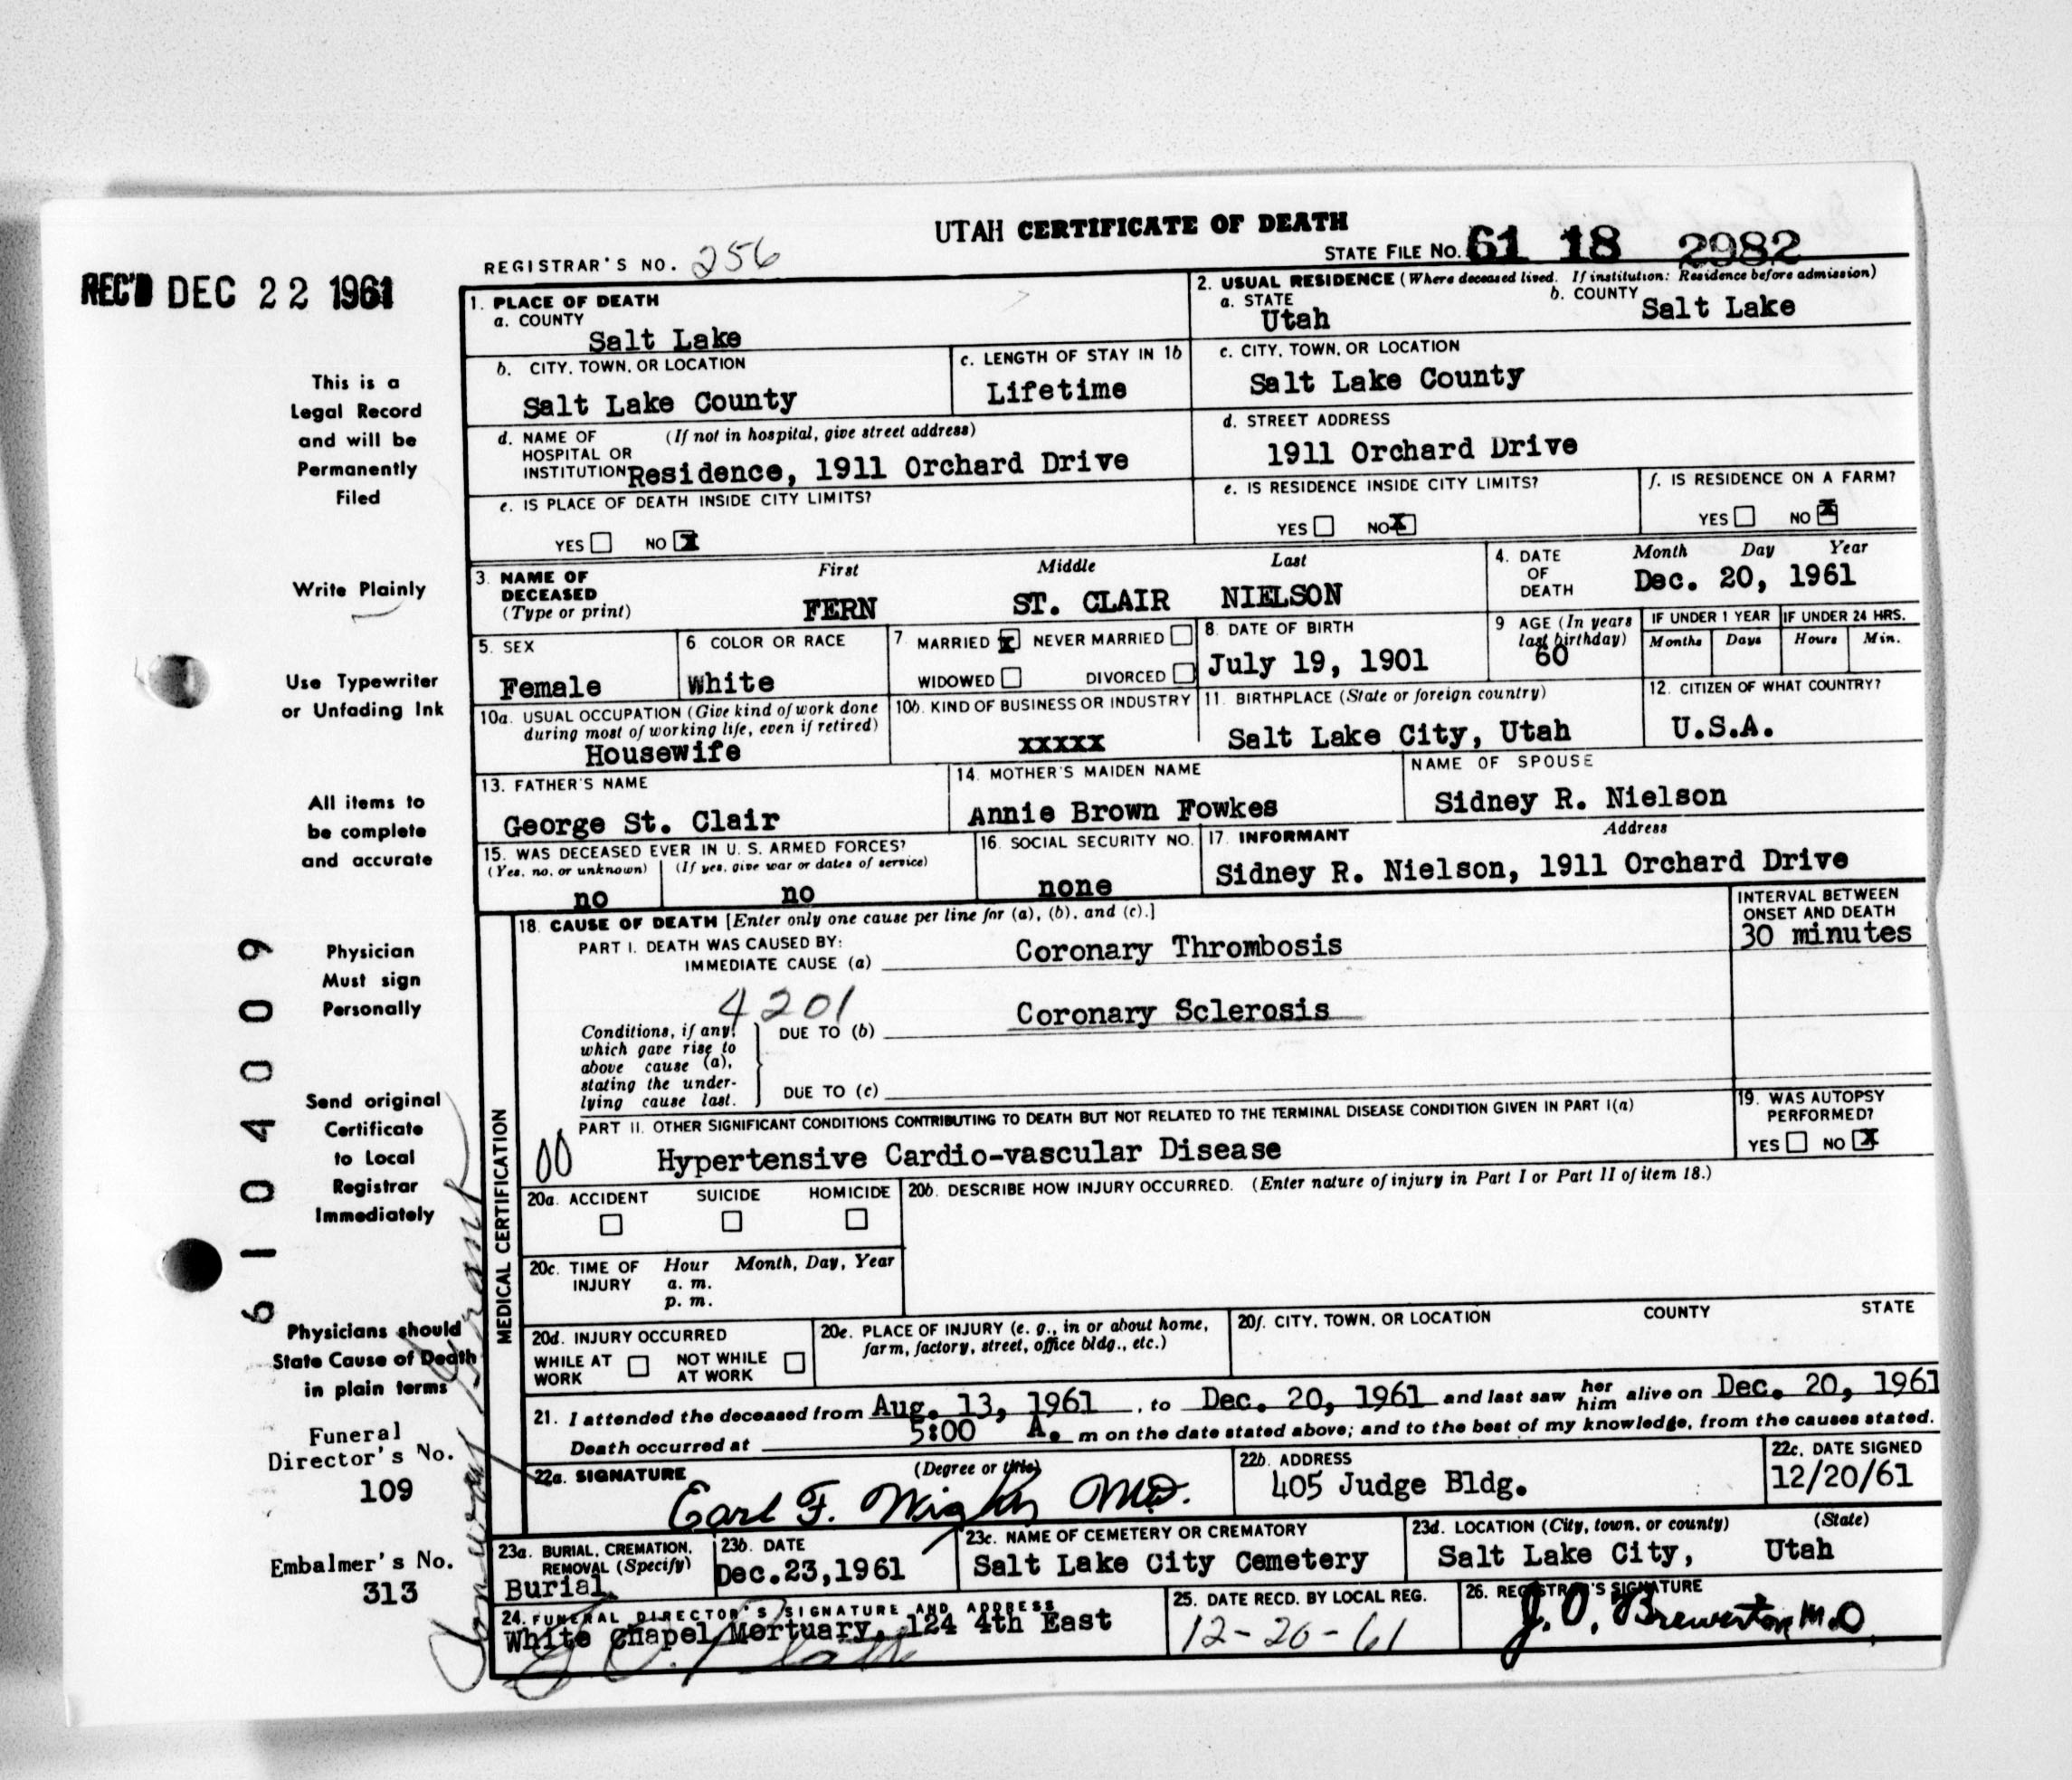 UTAH CERTIFICATE OF DEATH
REGISTRAR'S NO. 256
STATE FILE NO. 61 18 2982
REC'D DEC 22 1961
This is a
Legal Record
and will be
Permanently
Filed
Write Plainly
Use Typewriter
or Unfading Ink
All items to
be complete
and accurate
Physician
Must sign
Personally
Send original
Certificate
to Local
Registrar
Immediately
Physicians should
State Cause of Death
in plain terms
Funeral
Director's No.
109
Embalmer's No.
313
61 04009
1. PLACE OF DEATH
a. COUNTY
Salt Lake
2. USUAL RESIDENCE (Where deceased lived. If institution: Residence before admission)
a. STATE
Utah
b. COUNTY
Salt Lake
b. CITY, TOWN, OR LOCATION
Salt Lake County
c. LENGTH OF STAY IN 1b
Lifetime
c. CITY, TOWN, OR LOCATION
Salt Lake County
d. NAME OF (If not in hospital, give street address)
HOSPITAL OR
INSTITUTION Residence, 1911 Orchard Drive
d. STREET ADDRESS
1911 Orchard Drive
e. IS PLACE OF DEATH INSIDE CITY LIMITS?
YES NO X
e. IS RESIDENCE INSIDE CITY LIMITS?
YES NO X
f. IS RESIDENCE ON A FARM?
YES NO X
3. NAME OF
DECEASED
(Type or print)
First Middle Last
FERN ST. CLAIR NIELSON
4. DATE
OF
DEATH
Month Day Year
Dec. 20, 1961
5. SEX
Female
6 COLOR OR RACE
White
7. MARRIED X NEVER MARRIED
WIDOWED DIVORCED
8. DATE OF BIRTH
July 19, 1901
9 AGE (In years
last birthday)
60
IF UNDER 1 YEAR
Months Days
IF UNDER 24 HRS.
Hours Min.
10a. USUAL OCCUPATION (Give kind of work done
during most of working life, even if retired)
Housewife
10b. KIND OF BUSINESS OR INDUSTRY
XXXXX
11. BIRTHPLACE (State or foreign country)
Salt Lake City, Utah
12. CITIZEN OF WHAT COUNTRY?
U.S.A.
13. FATHER'S NAME
George St. Clair
14. MOTHER'S MAIDEN NAME
Annie Brown Fowkes
NAME OF SPOUSE
Sidney R. Nielson
15. WAS DECEASED EVER IN U. S. ARMED FORCES?
(Yes, no, or unknown) (If yes, give war or dates of service)
no no
16. SOCIAL SECURITY NO.
none
17. INFORMANT Address
Sidney R. Nielson, 1911 Orchard Drive
MEDICAL CERTIFICATION
18. CAUSE OF DEATH [Enter only one cause per line for (a), (b), and (c).]
INTERVAL BETWEEN
ONSET AND DEATH
PART I. DEATH WAS CAUSED BY:
IMMEDIATE CAUSE (a) Coronary Thrombosis
30 minutes
4201
Conditions, if any,
which gave rise to
above cause (a),
stating the under-
lying cause last.
DUE TO (b) Coronary Sclerosis
DUE TO (c)
PART II. OTHER SIGNIFICANT CONDITIONS CONTRIBUTING TO DEATH BUT NOT RELATED TO THE TERMINAL DISEASE CONDITION GIVEN IN PART I(a)
00 Hypertensive Cardio-vascular Disease
19. WAS AUTOPSY
PERFORMED?
YES NO X
20a. ACCIDENT SUICIDE HOMICIDE
20b. DESCRIBE HOW INJURY OCCURRED. (Enter nature of injury in Part I or Part II of item 18.)
20c. TIME OF
INJURY
Hour Month, Day, Year
a. m.
p. m.
20d. INJURY OCCURRED
WHILE AT
WORK
NOT WHILE
AT WORK
20e. PLACE OF INJURY (e. g., in or about home,
farm, factory, street, office bldg., etc.)
20f. CITY, TOWN, OR LOCATION COUNTY STATE
21. I attended the deceased from Aug. 13, 1961, to Dec. 20, 1961 and last saw her him alive on Dec. 20, 1961
Death occurred at 5:00 A. m on the date stated above; and to the best of my knowledge, from the causes stated.
22a. SIGNATURE (Degree or title)
Earl F. Wight M.D.
22b. ADDRESS
405 Judge Bldg.
22c. DATE SIGNED
12/20/61
23a. BURIAL, CREMATION,
REMOVAL (Specify)
Burial
23b. DATE
Dec.23,1961
23c. NAME OF CEMETERY OR CREMATORY
Salt Lake City Cemetery
23d. LOCATION (City, town, or county) (State)
Salt Lake City, Utah
24. FUNERAL DIRECTOR'S SIGNATURE AND ADDRESS
White Chapel Mortuary, 124 4th East
25. DATE RECD. BY LOCAL REG.
12-20-61
26. REGISTRAR'S SIGNATURE
J. O. Brewerton M.D.